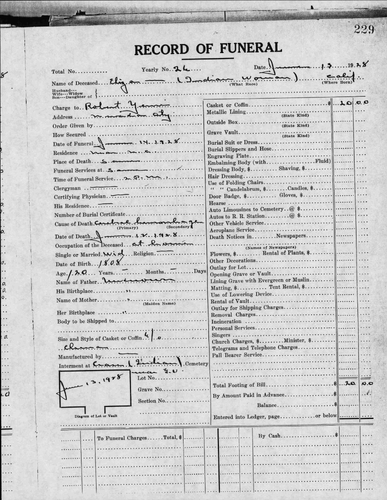 229
RECORD OF FUNERAL
Total No. Yearly No. 26 Date June 13 1928
Name of Deceased (Indian Woman) Calif.
(What Race) (Where Born)
Husband
Wife—Widow
Son—Daughter of
Charge to Robert
Address City
Order Given by
How Secured
Date of Funeral June 14. 1928
Residence
Place of Death
Funeral Services at
Time of Funeral Service 2 P.M.
Clergyman
Certifying Physician
His Residence
Number of Burial Certificate
Cause of Death Cerebral hemorrhage
(Primary) (Secondary)
Date of Death June 12. 1928
Occupation of the Deceased at home
Single or Married Wid Religion
Date of Birth 1808
Age 120 Years Months Days
Name of Father Unknown
His Birthplace
Name of Mother
(Maiden Name)
Her Birthplace
Body to be Shipped to
Size and Style of Casket or Coffin 6/0
Manufactured by
Interment at (Indian) Cemetery
June 13, 1928
Lot No.
Grave No.
Section No.
Diagram of Lot or Vault
Casket or Coffin $ 20 00
Metallic Lining
(State Kind)
Outside Box
(State Kind)
Grave Vault
(State Kind)
Burial Suit or Dress
Burial Slippers and Hose
Engraving Plate
Embalming Body (with Fluid)
Dressing Body, $ Shaving, $
Hair Dressing
Use of Folding Chairs
" " Candelabrum, $ Candles, $
Door Badge, $ Gloves, $
Hearse
Auto Limousines to Cemetery @ $
Autos to R. R. Station @ $
Other Vehicle Service
Aeroplane Service
Death Notices in Newspapers
(Names of Newspapers)
Flowers, $ Rental of Plants, $
Other Decorations
Outlay for Lot
Opening Grave or Vault
Lining Grave with Evergreen or Muslin
Matting, $ Tent Rental, $
Use of Lowering Device
Rental of Vault
Outlay for Shipping Charges
Removal Charges
Incineration
Personal Services
Singers
Church Charges, $ Minister, $
Telegrams and Telephone Charges
Pall Bearer Service
Total Footing of Bill $ 20 00
By Amount Paid in Advance
Balance
Entered into Ledger, page or below
To Funeral Charges Total, $
By Cash $